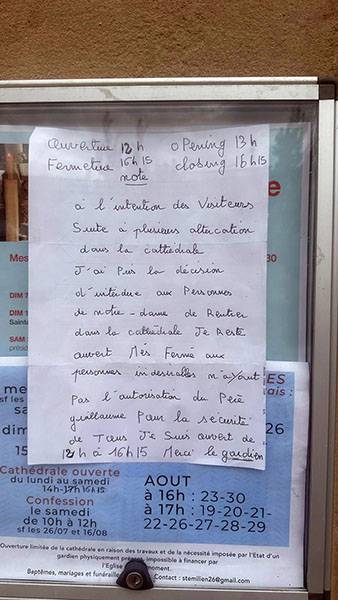 Ouverture 12h  OPening 13h
Fermeture 16h15  closing 16h15
note
à l'intention des Visiteurs
Suite à plusieurs altercation
dans la cathédrale
J'ai Pris la décision
d'interdire aux Personnes
de notre-dame de
dans la cathédrale Je Reste
ouvert Mès Fermé aux
personnes indésirables n'ayant
Pas l'autorisation du Père
guillaume Pour la sécurité
de Tous Je Suis ouvert de
12h à 16h15 Merci le gardien
Mes
30
DIM 7
DIM 1
SAM
me
sf les
sa
dim
15
26
Cathédrale ouverte
du lundi au samedi
14h-17h 16h15
Confession
le samedi
de 10h à 12h
sf les 26/07 et 16/08
AOUT
à 16h : 23-30
à 17h : 19-20-21-
22-26-27-28-29
Ouverture limitée de la cathédrale en raison des travaux et de la nécessité imposée par l'Etat d'un
gardien physiquement présent, impossible à financer par
l'Eglise moment.
Baptêmes, mariages et funérailles Contact : stemilien26@gmail.com